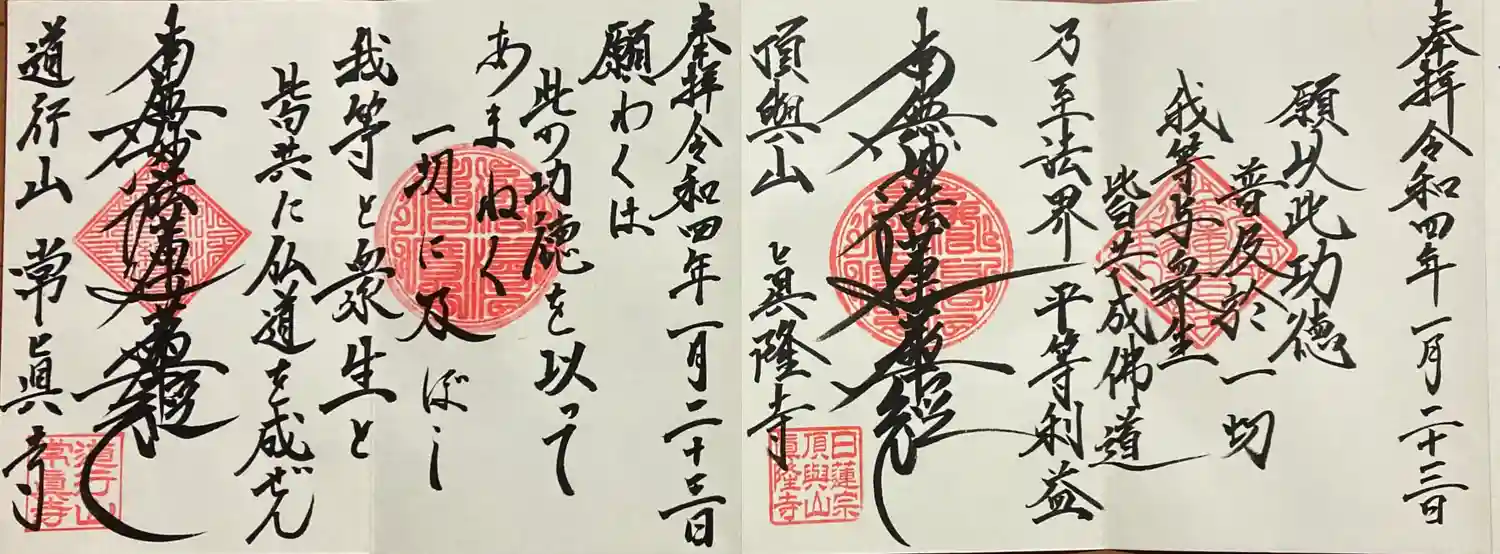 奉拝 令和四年一月二十三日
願以此功徳
普及於一切
我等与衆生
皆共成佛道
乃至法界 平等利益
南無妙法蓮華経
頂與山 眞隆寺
日蓮宗
頂與山
眞隆寺
奉拝 令和四年一月二十三日
願わくは
此の功徳を以って
あまねく
一切に及ぼし
我等と衆生と
皆共に仏道を成ぜん
南無妙法蓮華経
道行山 常眞寺
道行山
常眞寺